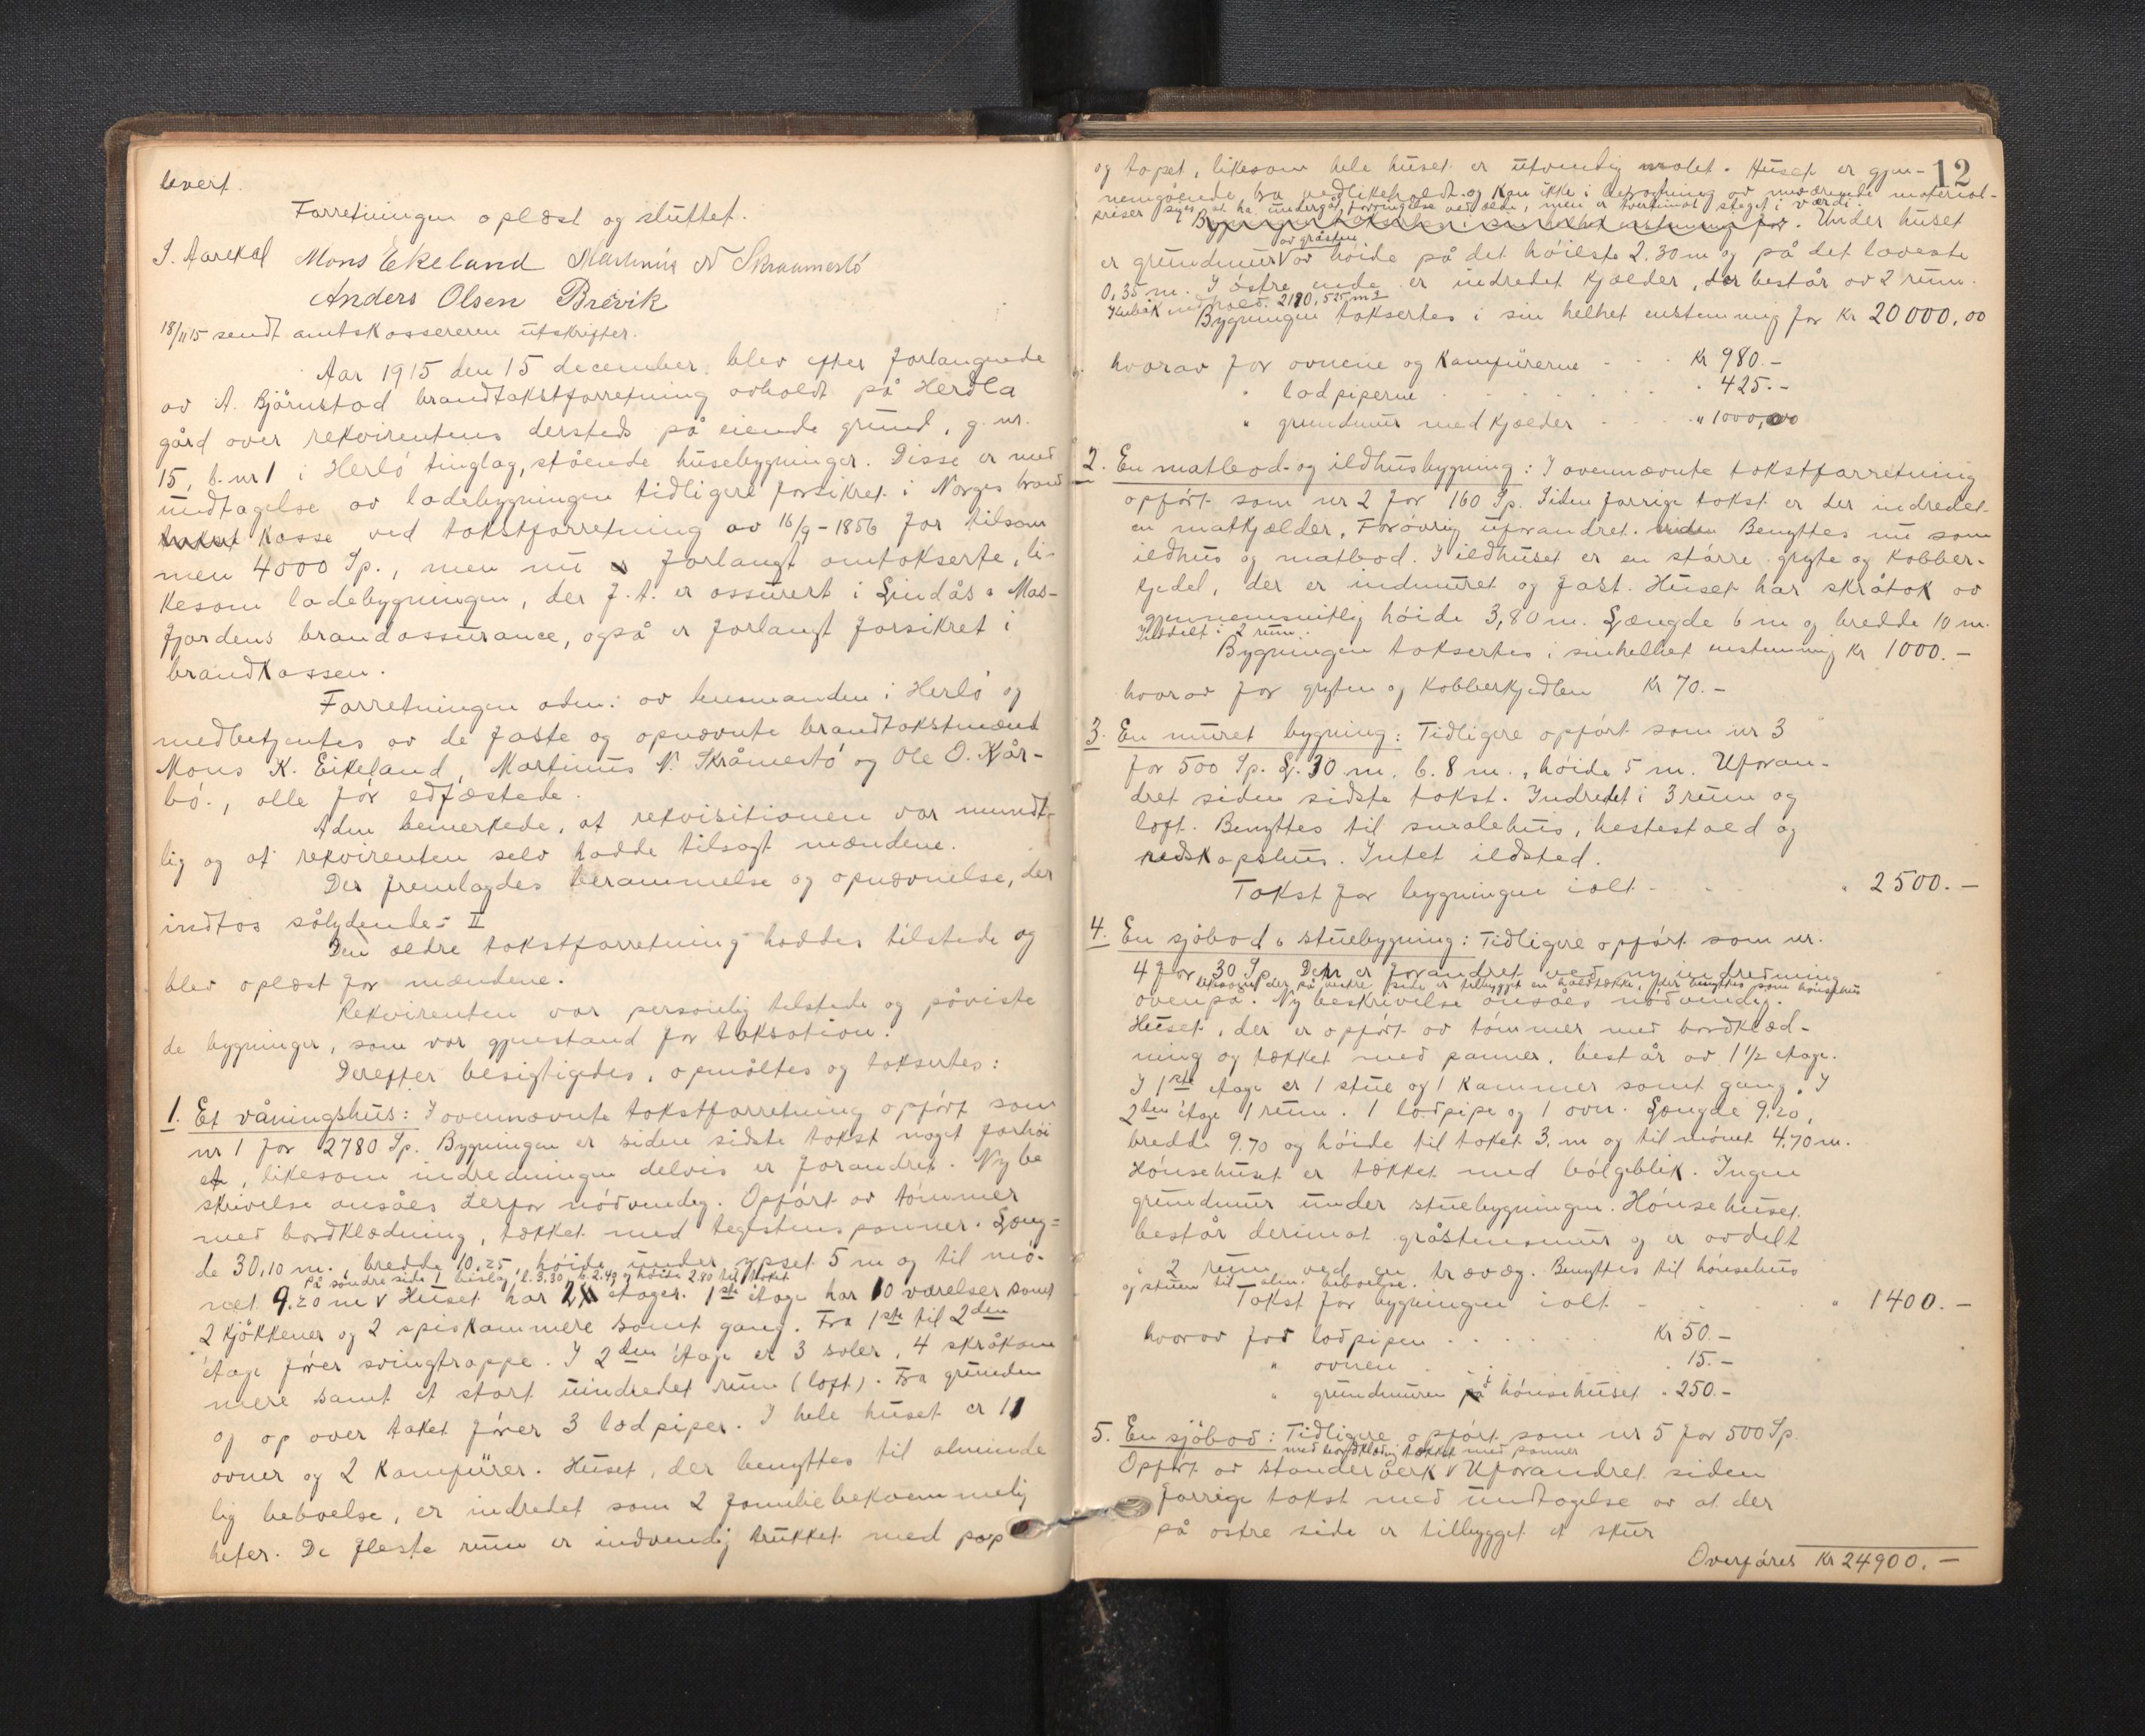 levert.
Forretningen oplæst og sluttet.
J. Aarekol Mons Ekeland Martinus N Skraamestö
Anders Olsen Brevik
18/11 15 sendt amtskassereren utskrifter.
Aar 1915 den 15 december, blev efter forlangende
av A. Björnstad brandtakstforretning avholdt på Herdla
gård over rekvirentens dersteds på eiende grund, g. nr.
15, b. nr 1 i Herlö tinglag, stående husebygninger. Disse er med
undtagelse av ladebygningen tidligere forsikret i Norges brand
kasse ved takstforretning av 16/9-1856 for tilsam
men 4000 Sp., men nu forlangt omtakserte, li-
kesom ladebygningen, der f. t. er assurert i Lindås & Mas-
fjordens brandassurance, også er forlangt forsikret i
brandkassen.
Forretningen adm: av lensmanden i Herlö og
medbetjentes av de faste og opnævnte brandtakstmænd
Mons K. Eikeland, Martinus N. Skråmestö og Ole O. Kår-
bö., alle för edfæstede.
Adm bemerkede, at rekvisitionen var mundt-
lig og at rekvirenten selv hadde tilsagt mændene.
Der fremlagdes berammelse og opnævnelse, der
indtas sålydende: II
Den ældre takstforretning haddes tilstede og
blev oplæst for mændene.
Rekvirenten var personlig tilstede og påviste
de bygninger, som var gjenstand for taksation.
Derefter besigtigedes, opmåltes og taksertes:
1. Et våningshus: I ovennævnte takstforretning opfört som
nr 1 for 2780 Sp. Bygningen er siden sidste takst noget forhöi
et, likesom indredningen delvis er forandret. Ny be
skrivelse ansåes derfor nödvendig. Opfört av tömmer
med bordklædning, tækket med teglstens panner. Læng-
de 30,10 m., bredde 10,25, höide under gpset 5 m og til mö-
På söndre side 1 bislag, l. 3.30, b. 2.40 og höide 2.80 til taket
net 9.20 m v Huset har 2 etager. 1ste etage har 10 værelser samt
2 kjökkener og 2 spiskammere samt gang. Fra 1ste til 2den
etage förer svingtrappe. I 2den etage er 3 saler, 4 skråkam
mere samt et stort uindredet rum (loft). Fra grunden
og op over taket förer 3 lodpiper. I hele huset er 11
ovner og 2 kamfürer. Huset, der benyttes til alminde
lig beboelse, er indredet som 2 familiebekvemmelig
heter. De fleste rum er indvendig trukket med pap
12
og tapet, likesom hele huset er utvendig malet. Huset er gjen-
nemgående bra vedlikeholdt og kan ikke i betragtning av nuværende material-
priser siges at ha undergåt forringelse ved ælde, men er tvertimot steget i værdi.
Bygningen taksertes i sin helhet enstemmig for. Under huset
av gråsten
er grundmur v av höide på det höieste 2.30 m og på det laveste
0,35 m. I östre ende er indredet kjælder, der består av 2 rum.
Kubik indhold. 2180,525 m3
Bygningen taksertes i sin helhet enstemmig for Kr 20000,00
hvorav for ovnene og kamfürerne Kr 980.-
" lodpiperne " 425.-
" grundmur med kjælder " 1000,00
2. En matbod- og ildhusbygning: I ovennævnte takstforretning
opfört som nr 2 for 160 Sp. Siden forrige takst er der indredet
en matkjælder, Forövrig uforandret. Benyttes nu som
ildhus og matbod. I ildhuset er en större gryte og kobber-
kjedel, der er indmuret og fast. Huset har skråtak av
gjennemsnitlig höide 3,80 m. Længde 6 m og bredde 10 m.
Inddelt i 2 rum.
Bygningen taksertes i sin helhet enstemmig Kr 1000.-
hvorav for gryten og kobberkjedlen Kr 70.-
3. En muret bygning: Tidligere opfört som nr 3
for 500 Sp. L. 30 m. b. 8 m., höide 5 m. Uforan-
dret siden sidste takst. Indredet i 3 rum og
loft. Benyttes til smalehus, hestestald og
redskapshus. Intet ildsted.
Takst for bygningen ialt " 2500.-
4. En sjöbod & stuebygning: Tidligere opfört som nr.
4 for 30 Sp. Den er forandret ved ny indredning
likesom der på nedre side er tilbygget en halvtække, der benyttes som hönsehus
ovenpå. Ny beskrivelse ansåes nödvendig.
Huset, der er opfört av tömmer med bordklæd-
ning og tækket med panner, består av 1½ etage.
I 1ste etage er 1 stue og 1 kammer samt gang. I
2den etage 1 rum. 1 lodpipe og 1 ovn. Længde 9.20,
bredde 9.70 og höide til taket 3. m og til mönet 4.70 m.
Hönsehuset er tækket med bölgeblik. Ingen
grundmur under stuebygningen. Hönsehuset
består derimot gråstensmur og er avdelt
i 2 rum ved en trævæg. Benyttes til hönsehus
og stuen til alm. beboelse.
Takst for bygningen ialt " 1400.-
hvorav for lodpipen Kr 50.-
" ovnen " 15.-
" grundmuren i hönsehuset " 250.-
5. En sjöbod: Tidligere opfört som nr 5 for 500 Sp.
med bordklædng tækket med panner
Opfört av stenderværk v Uforandret siden
forrige takst med undtagelse av at der
på östre side er tilbygget et skur
Overföres Kr 24900.-